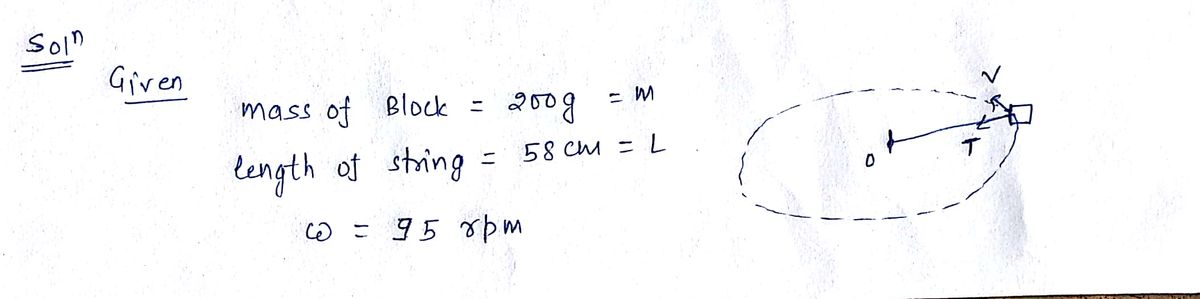 Solⁿ
Given
mass of Block = 200g = M
length of string = 58 cm = L
ω = 95 rpm
V
T
O